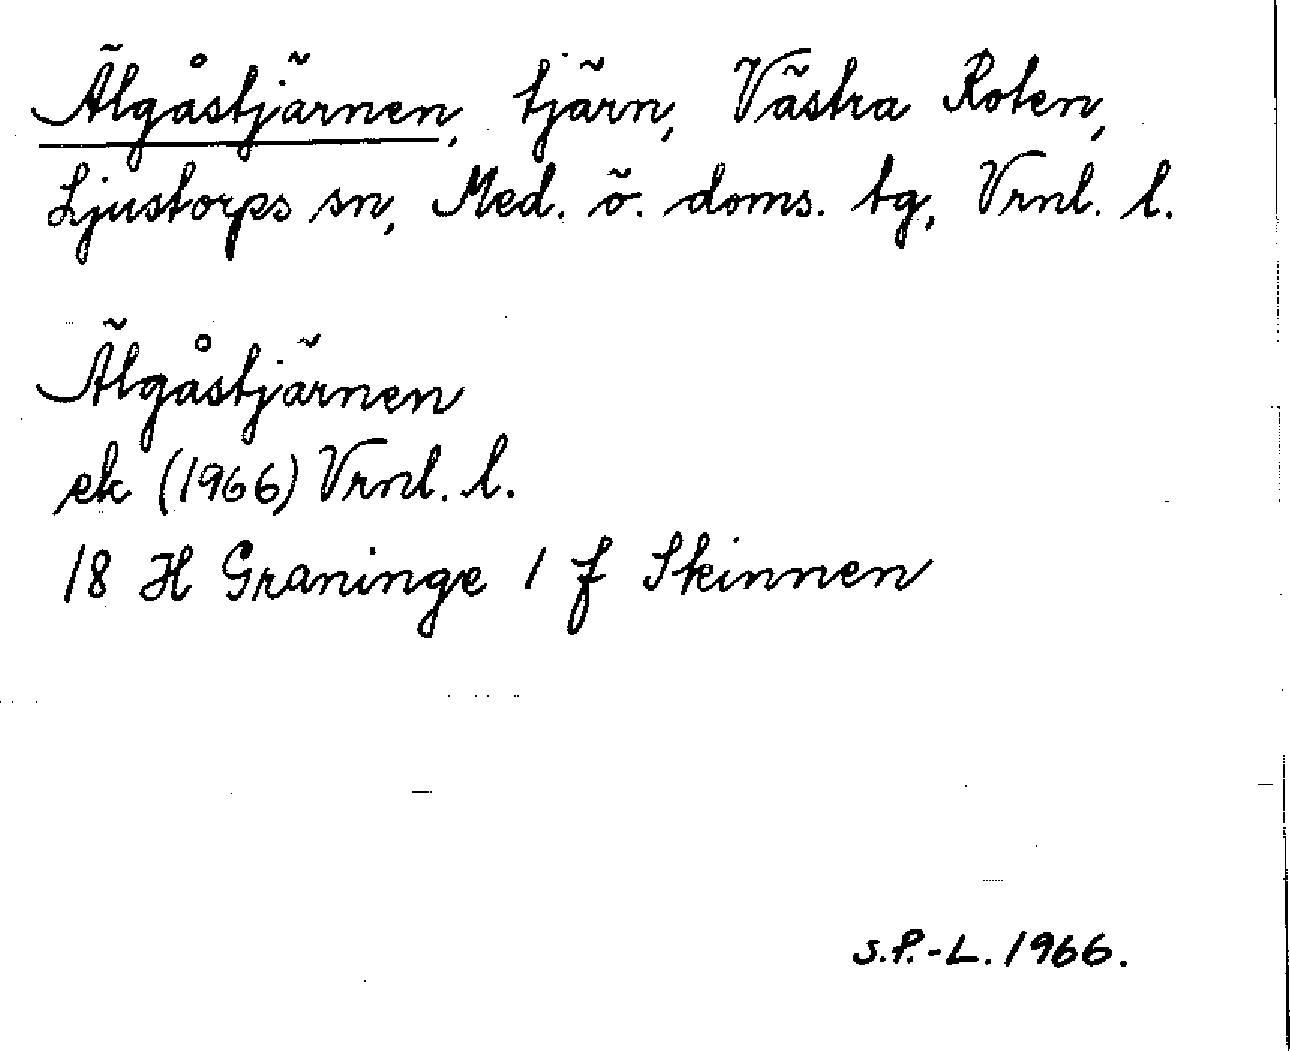 Älgåstjärnen, tjärn, Västra Roten,
Ljustorps sn, Med. ö. doms. tg, Vrnl. l.
Älgåstjärnen
ek (1966) Vrnl. l.
18 H Graninge 1 f Skinnen
S.P.-L. 1966.